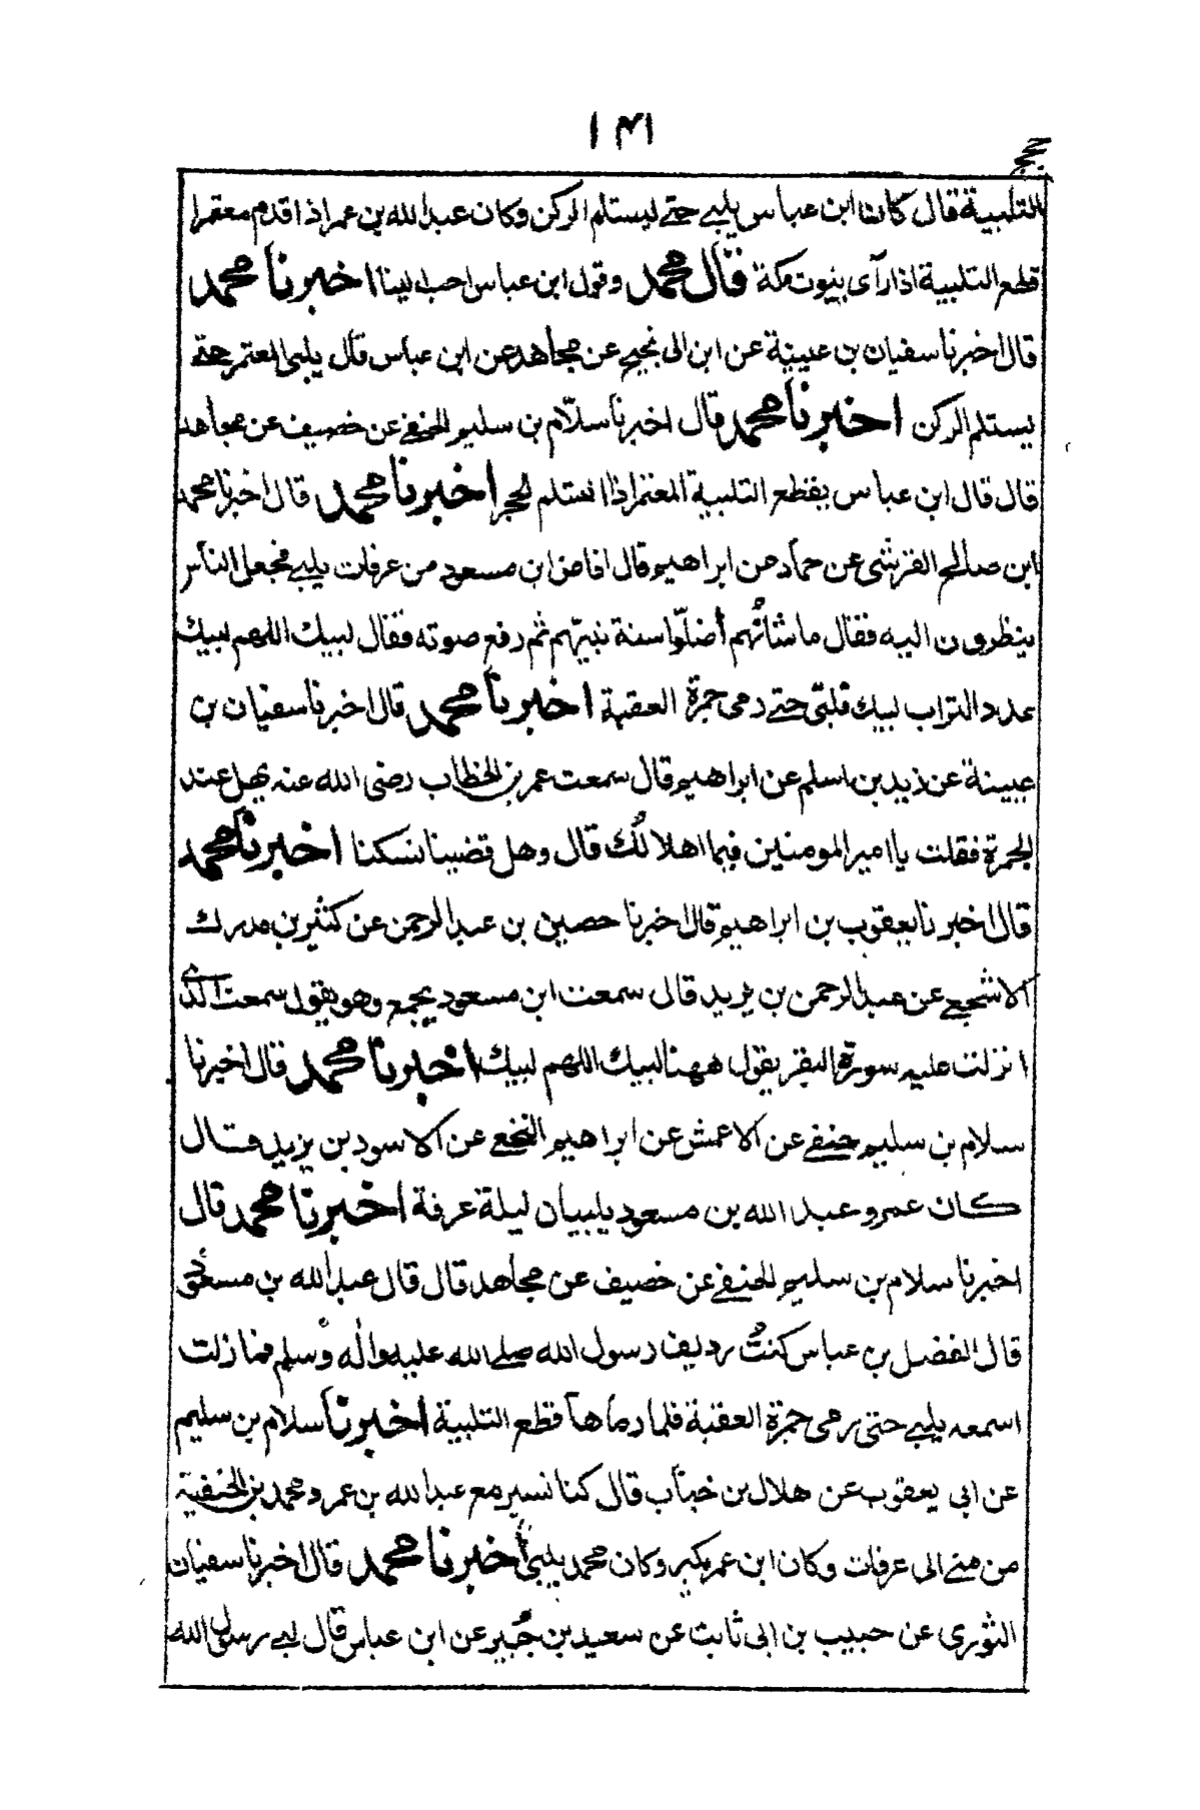 ١٣١
حج
التلبية قال كان ابن عباس يلبي حتے ليستلم الركن وكان عبد الله بن عمر اذا قدم معتمرا
قطع التلبية اذا رآى بيوت مكة قال محمد وقول ابن عباس احب الينا اخبرنا محمد
قال اخبرنا سفيان بن عيينة عن ابن ابى نجيح عن مجاهد عن ابن عباس قال يلبى المعتمر حتے
يستلم الركن اخبرنا محمد قال اخبرنا سلّام بن سليم الحنفے عن خصيف عن مجاهد
قال قال ابن عباس يقطع التلبية المعتمر اذا استلم الحجر اخبرنا محمد قال اخبرنا محمد
ابن صالح القرشى عن حماد عن ابراهيم قال افاض ابن مسعود من عرفات يلبے فجعل الناس
ينظرون اليه فقال ما شأنُهم أضلّوا سنة نبيّهم ثم رفع صوته فقال لبيك اللهم لبيك
عدد التراب لبيك فلبّى حتے رمى جمرة العقبة اخبرنا محمد قال اخبرنا سفيان بن
عيينة عن زيد بن اسلم عن ابراهيم قال سمعت عمر بن الخطاب رضى الله عنه يهل عند
الجمرة فقلت يا امير المومنين فيما اهلالُك قال وهل قضينا نسكنا اخبرنا محمد
قال اخبرنا يعقوب بن ابراهيم قال اخبرنا حصين بن عبد الرحمن عن كثير بن مدرك
الاشجعے عن عبد الرحمن بن يزيد قال سمعت ابن مسعود بجمع وهو يقول سمعت الذى
انزلت عليه سورة البقر يقول ههنا لبيك اللهم لبيك اخبرنا محمد قال اخبرنا
سلام بن سليم حنفے عن الاعمش عن ابراهيم النخعے عن الاسود بن يزيد قال
كان عمر و عبد الله بن مسعود يلبيان ليلة عرفة اخبرنا محمد قال
اخبرنا سلام بن سليم الحنفے عن خصيف عن مجاهد قال قال عبد الله بن مسعود
قال الفضل بن عباس كنتُ رديف رسول الله صلے الله عليه واٰله وسلم فما زلت
اسمعه يلبے حتى رمى جمرة العقبة فلما رماها قطع التلبية اخبرنا سلام بن سليم
عن ابى يعقوب عن هلال بن خباب قال كنا نسير مع عبد الله بن عمر و محمد بن الحنفية
من منے الى عرفات وكان ابن عمر يكبر وكان محمد يلبى اخبرنا محمد قال اخبرنا سفيان
الثورى عن حبيب بن ابى ثابت عن سعيد بن جُبير عن ابن عباس قال لبے رسول الله